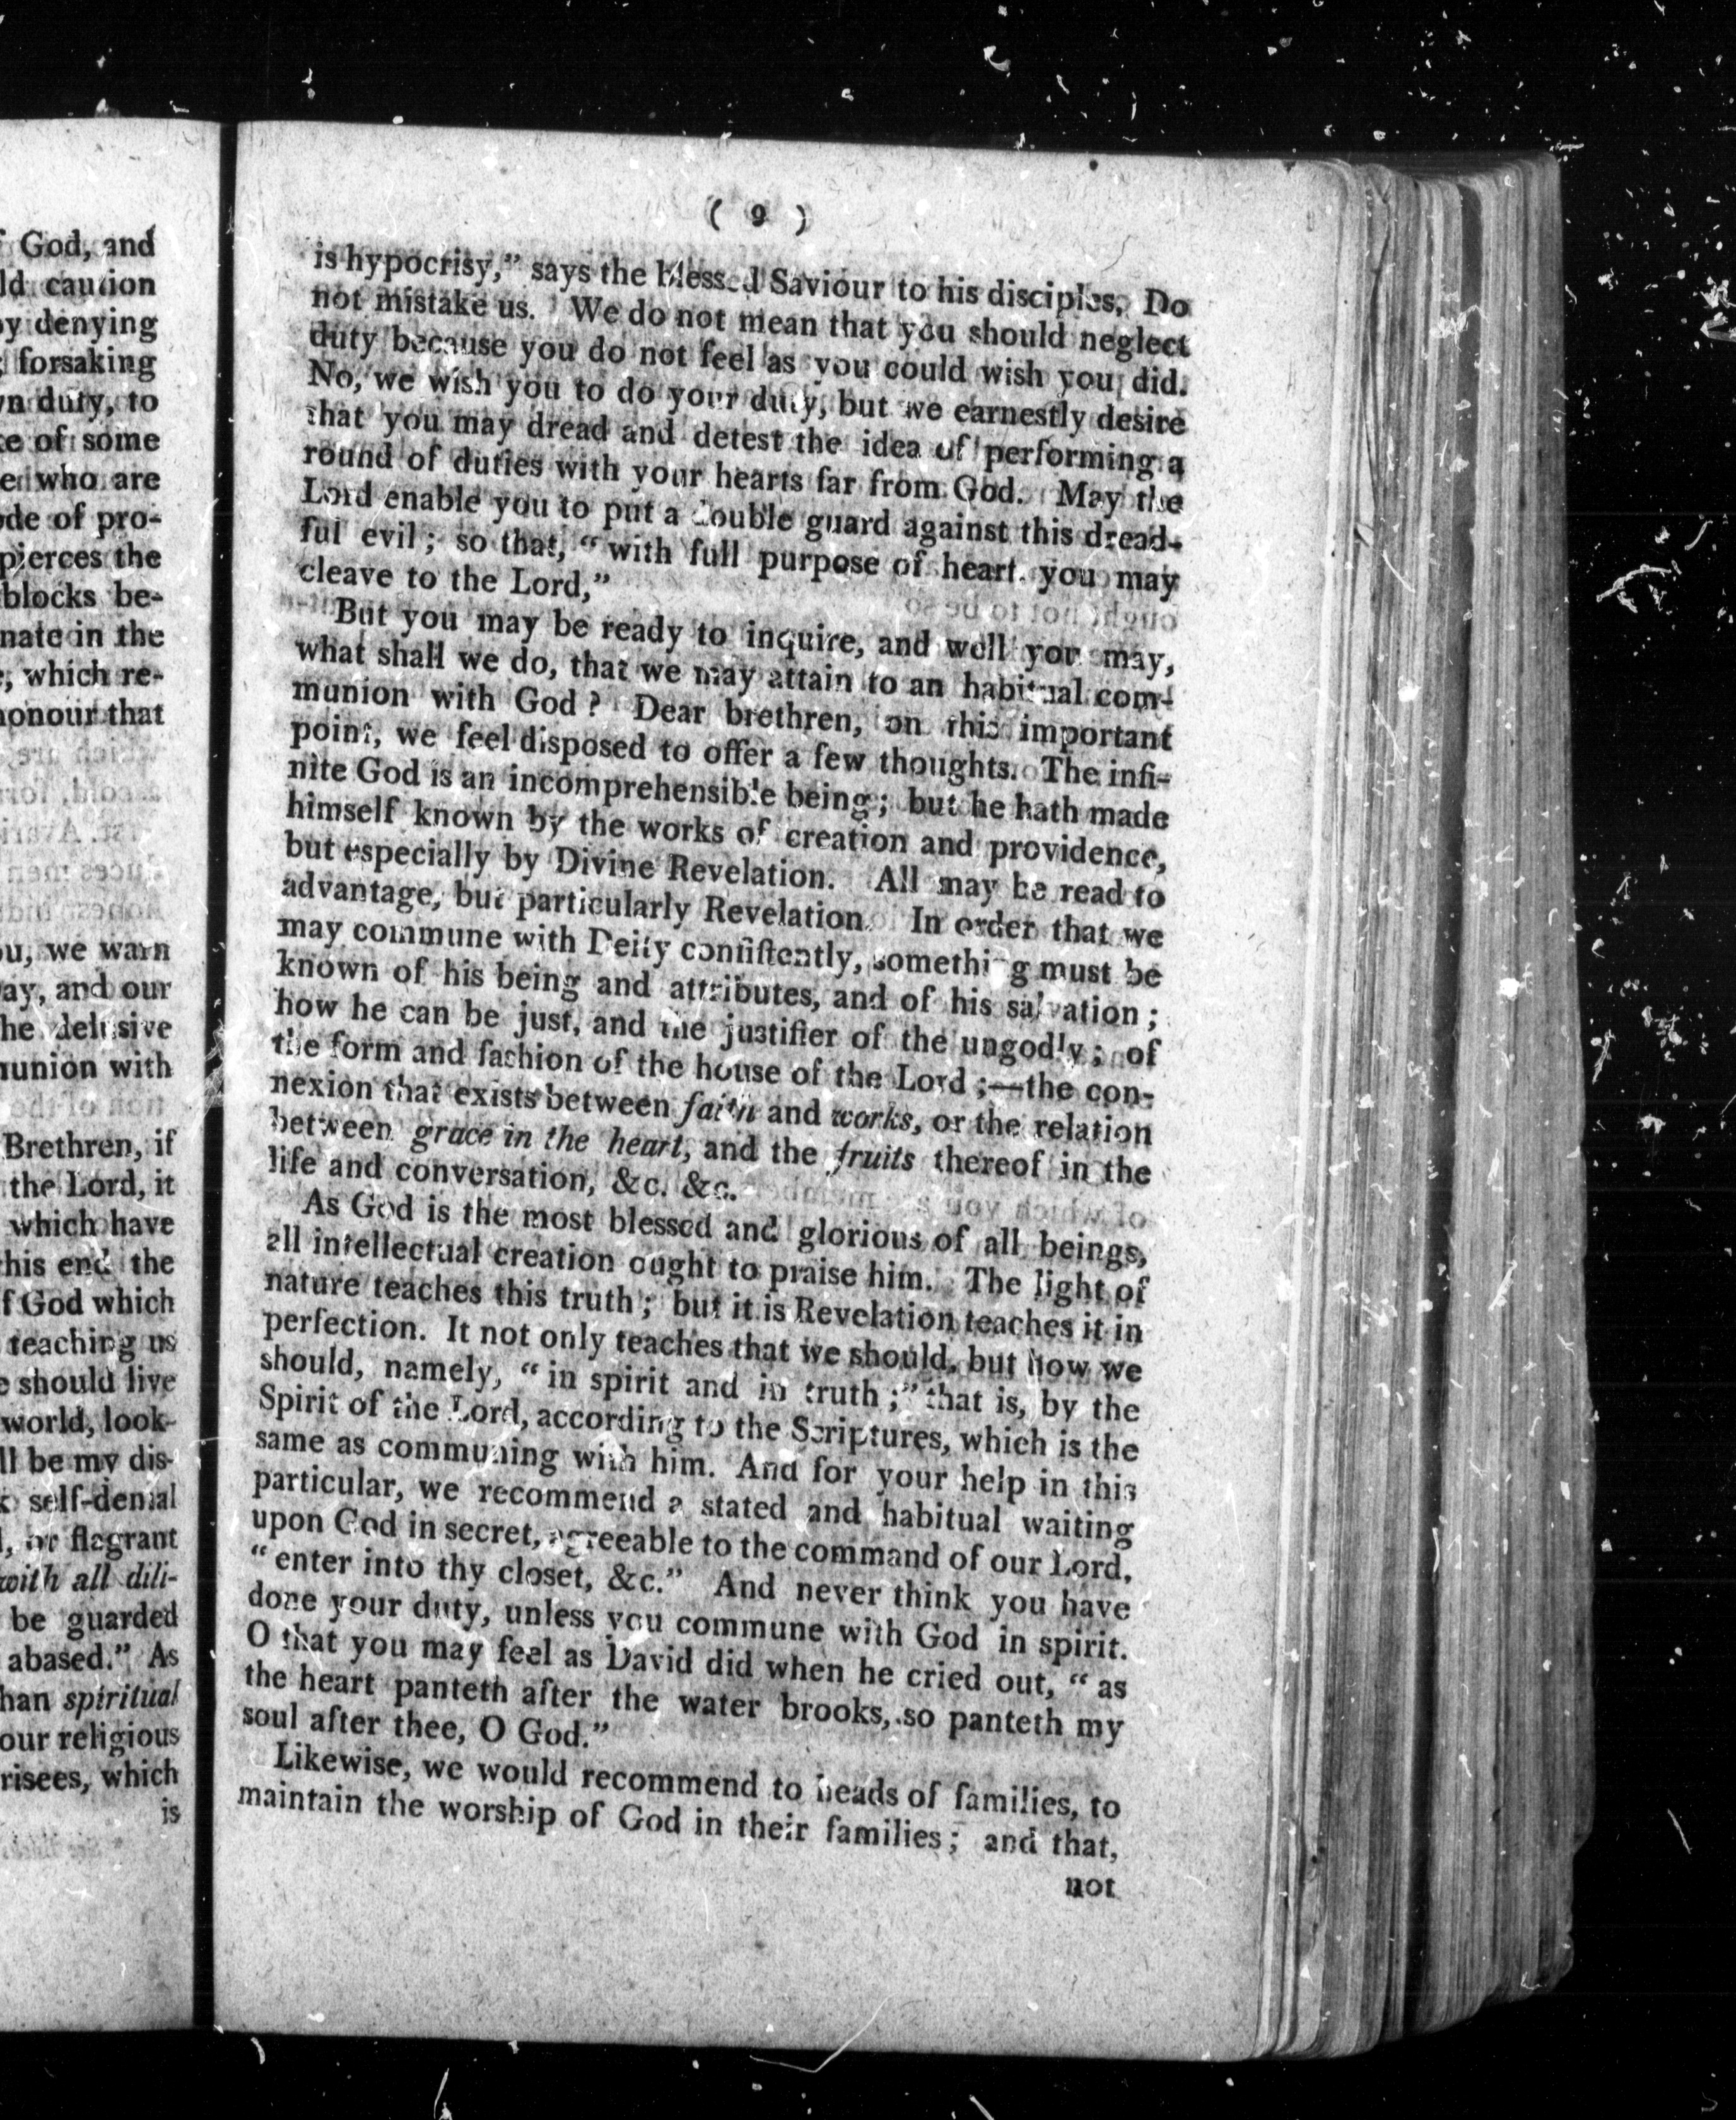 f God, and
ld caution
by denying
; forsaking
wn duty, to
ke of some
e who are
ode of pro-
pierces the
blocks be-
nate in the
e, which re-
honour that
ou, we warn
way, and our
he delusive
munion with
Brethren, if
the Lord, it
which have
this end the
f God which
teaching us
e should live
world, look-
ll be my dis-
k self-denial
l, or flagrant
with all dili-
be guarded
abased." As
han spiritual
our religious
risees, which
is
( 9 )
is hypocrisy," says the blessed Saviour to his disciples, Do
not mistake us. We do not mean that you should neglect
duty because you do not feel as you could wish you did.
No, we wish you to do your duty, but we earnestly desire
that you may dread and detest the idea of performing a
round of duties with your hearts far from God. May the
Lord enable you to put a double guard against this dread-
ful evil; so that, "with full purpose of heart you may
cleave to the Lord,"
But you may be ready to inquire, and well you may,
what shall we do, that we may attain to an habitual com-
munion with God? Dear brethren, on this important
point, we feel disposed to offer a few thoughts. The infi-
nite God is an incomprehensible being; but he hath made
himself known by the works of creation and providence,
but especially by Divine Revelation. All may be read to
advantage, but particularly Revelation. In order that we
may commune with Deity consiſtently, something must be
known of his being and attributes, and of his salvation;
how he can be just, and the justifier of the ungodly; of
the form and fashion of the house of the Lord;—the con-
nexion that exists between faith and works, or the relation
between grace in the heart, and the fruits thereof in the
life and conversation, &c. &c.
As God is the most blessed and glorious of all beings,
all intellectual creation ought to praise him. The light of
nature teaches this truth; but it is Revelation teaches it in
perfection. It not only teaches that we should, but how we
should, namely, "in spirit and in truth;" that is, by the
Spirit of the Lord, according to the Scriptures, which is the
same as communing with him. And for your help in this
particular, we recommend a stated and habitual waiting
upon God in secret, agreeable to the command of our Lord,
"enter into thy closet, &c." And never think you have
done your duty, unless you commune with God in spirit.
O that you may feel as David did when he cried out, "as
the heart panteth after the water brooks, so panteth my
soul after thee, O God."
Likewise, we would recommend to heads of families, to
maintain the worship of God in their families; and that,
not